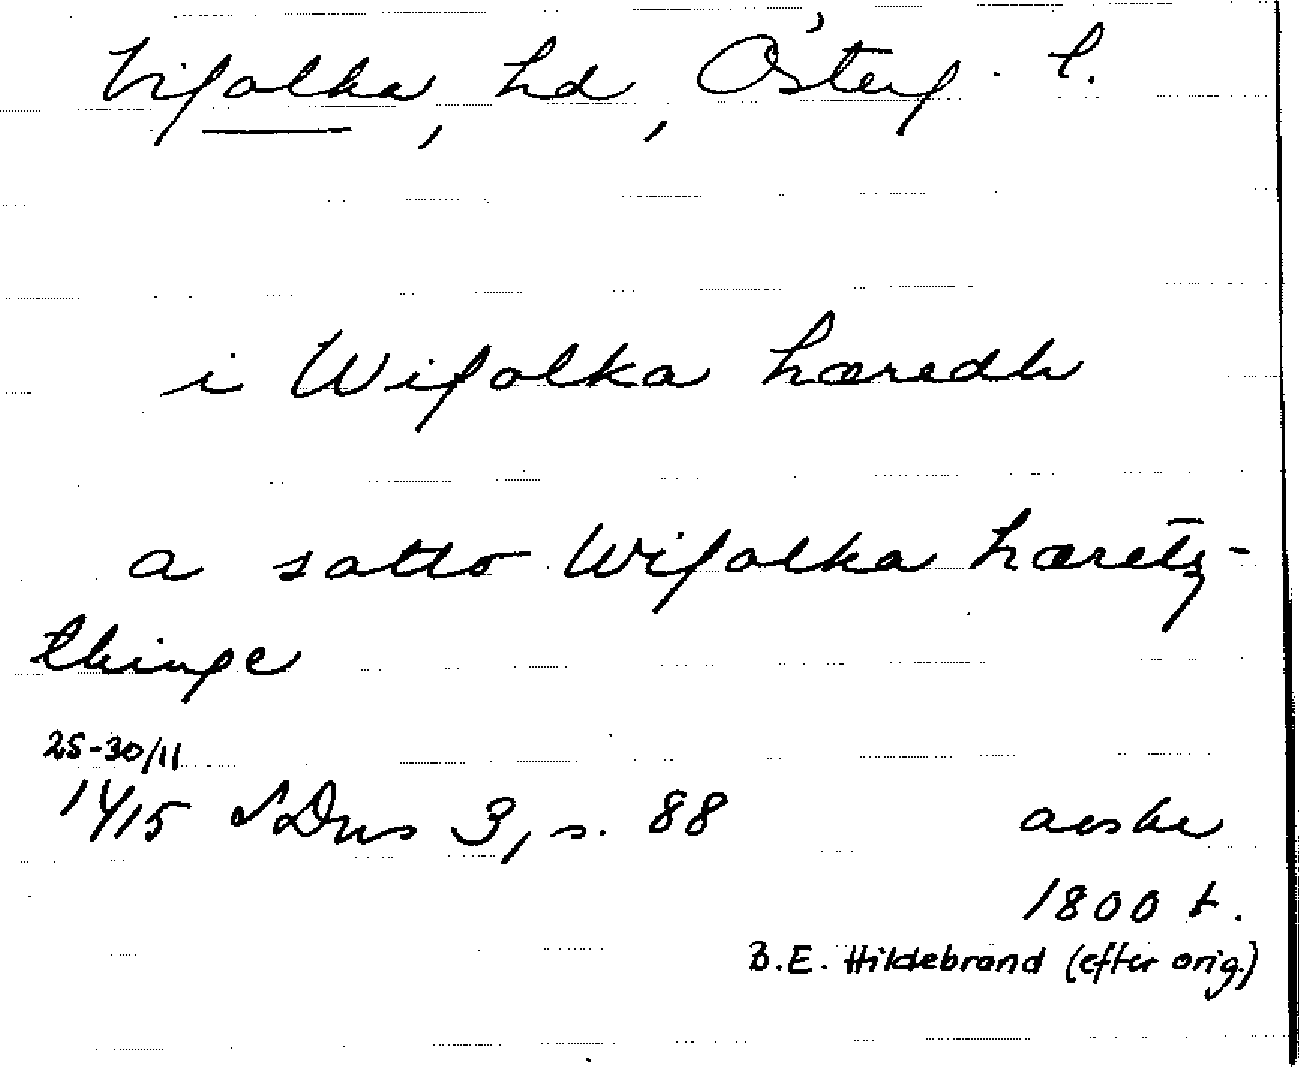 Vifolka, hd, Österg. l.
i Wifolka hæredh
a satto Wifolka hæretz-
thinge
25-30/11
1415 SDns 3, s. 88 avskr
1800 t.
B.E. Hildebrand (efter orig.)